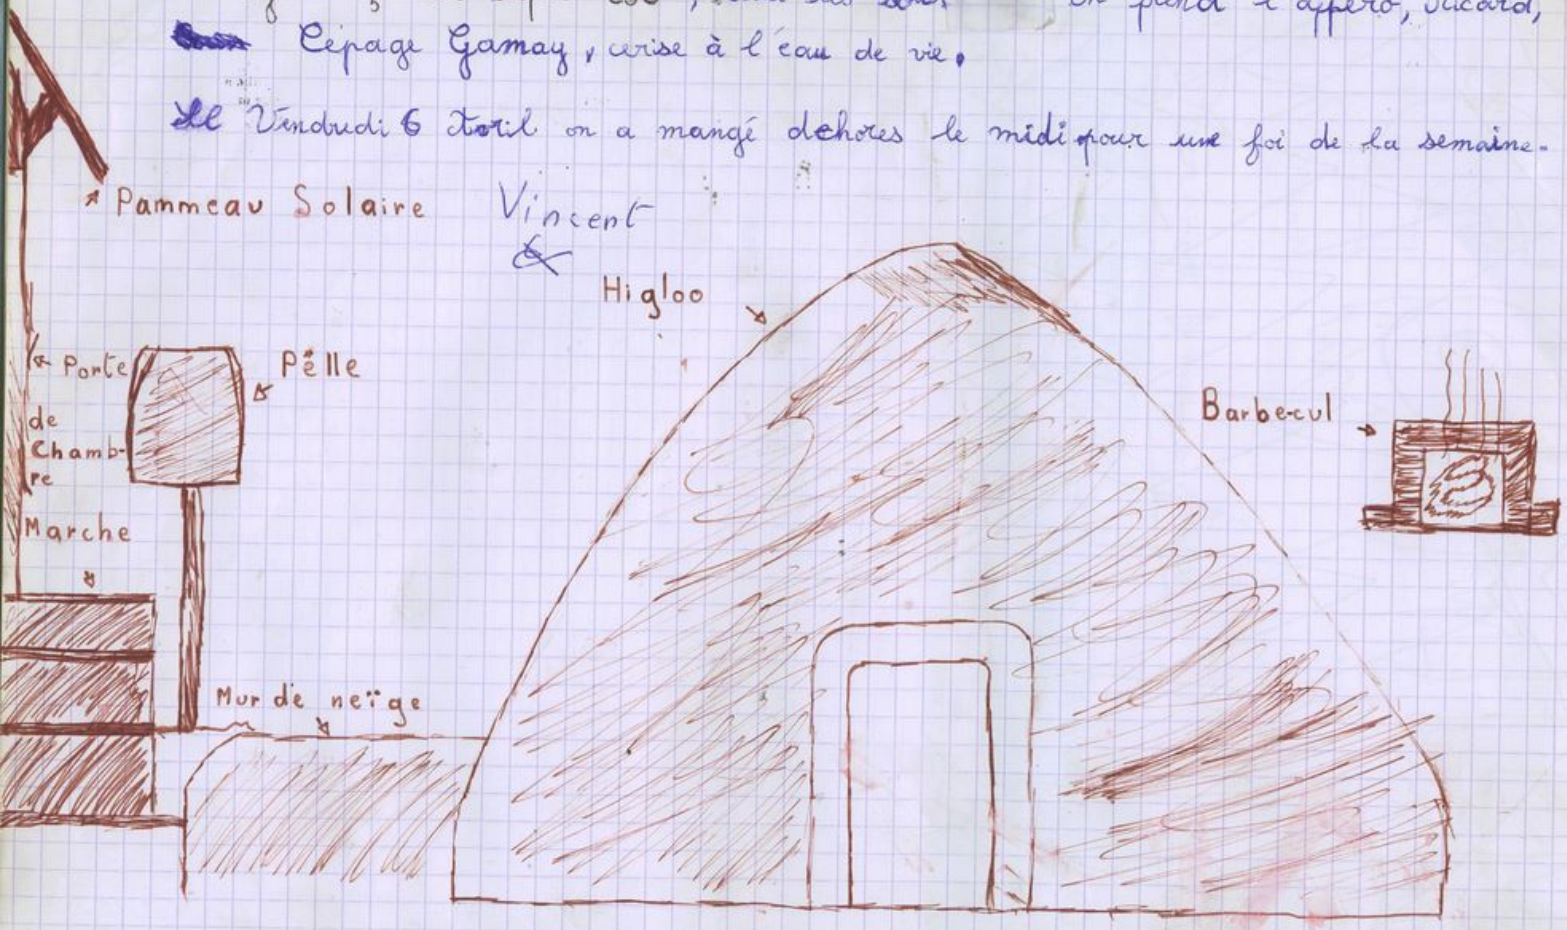 on prend l'appero, ricard,
Cépage Gamay, cerise à l'eau de vie.
Vendredi 6 Avril on a mangé dehores le midi pour une foi de la semaine.
Pammeau Solaire
Vincent
Higloo
Porte
de
Chamb-
re
Pêlle
Barbe-cul
Marche
Mur de neïge